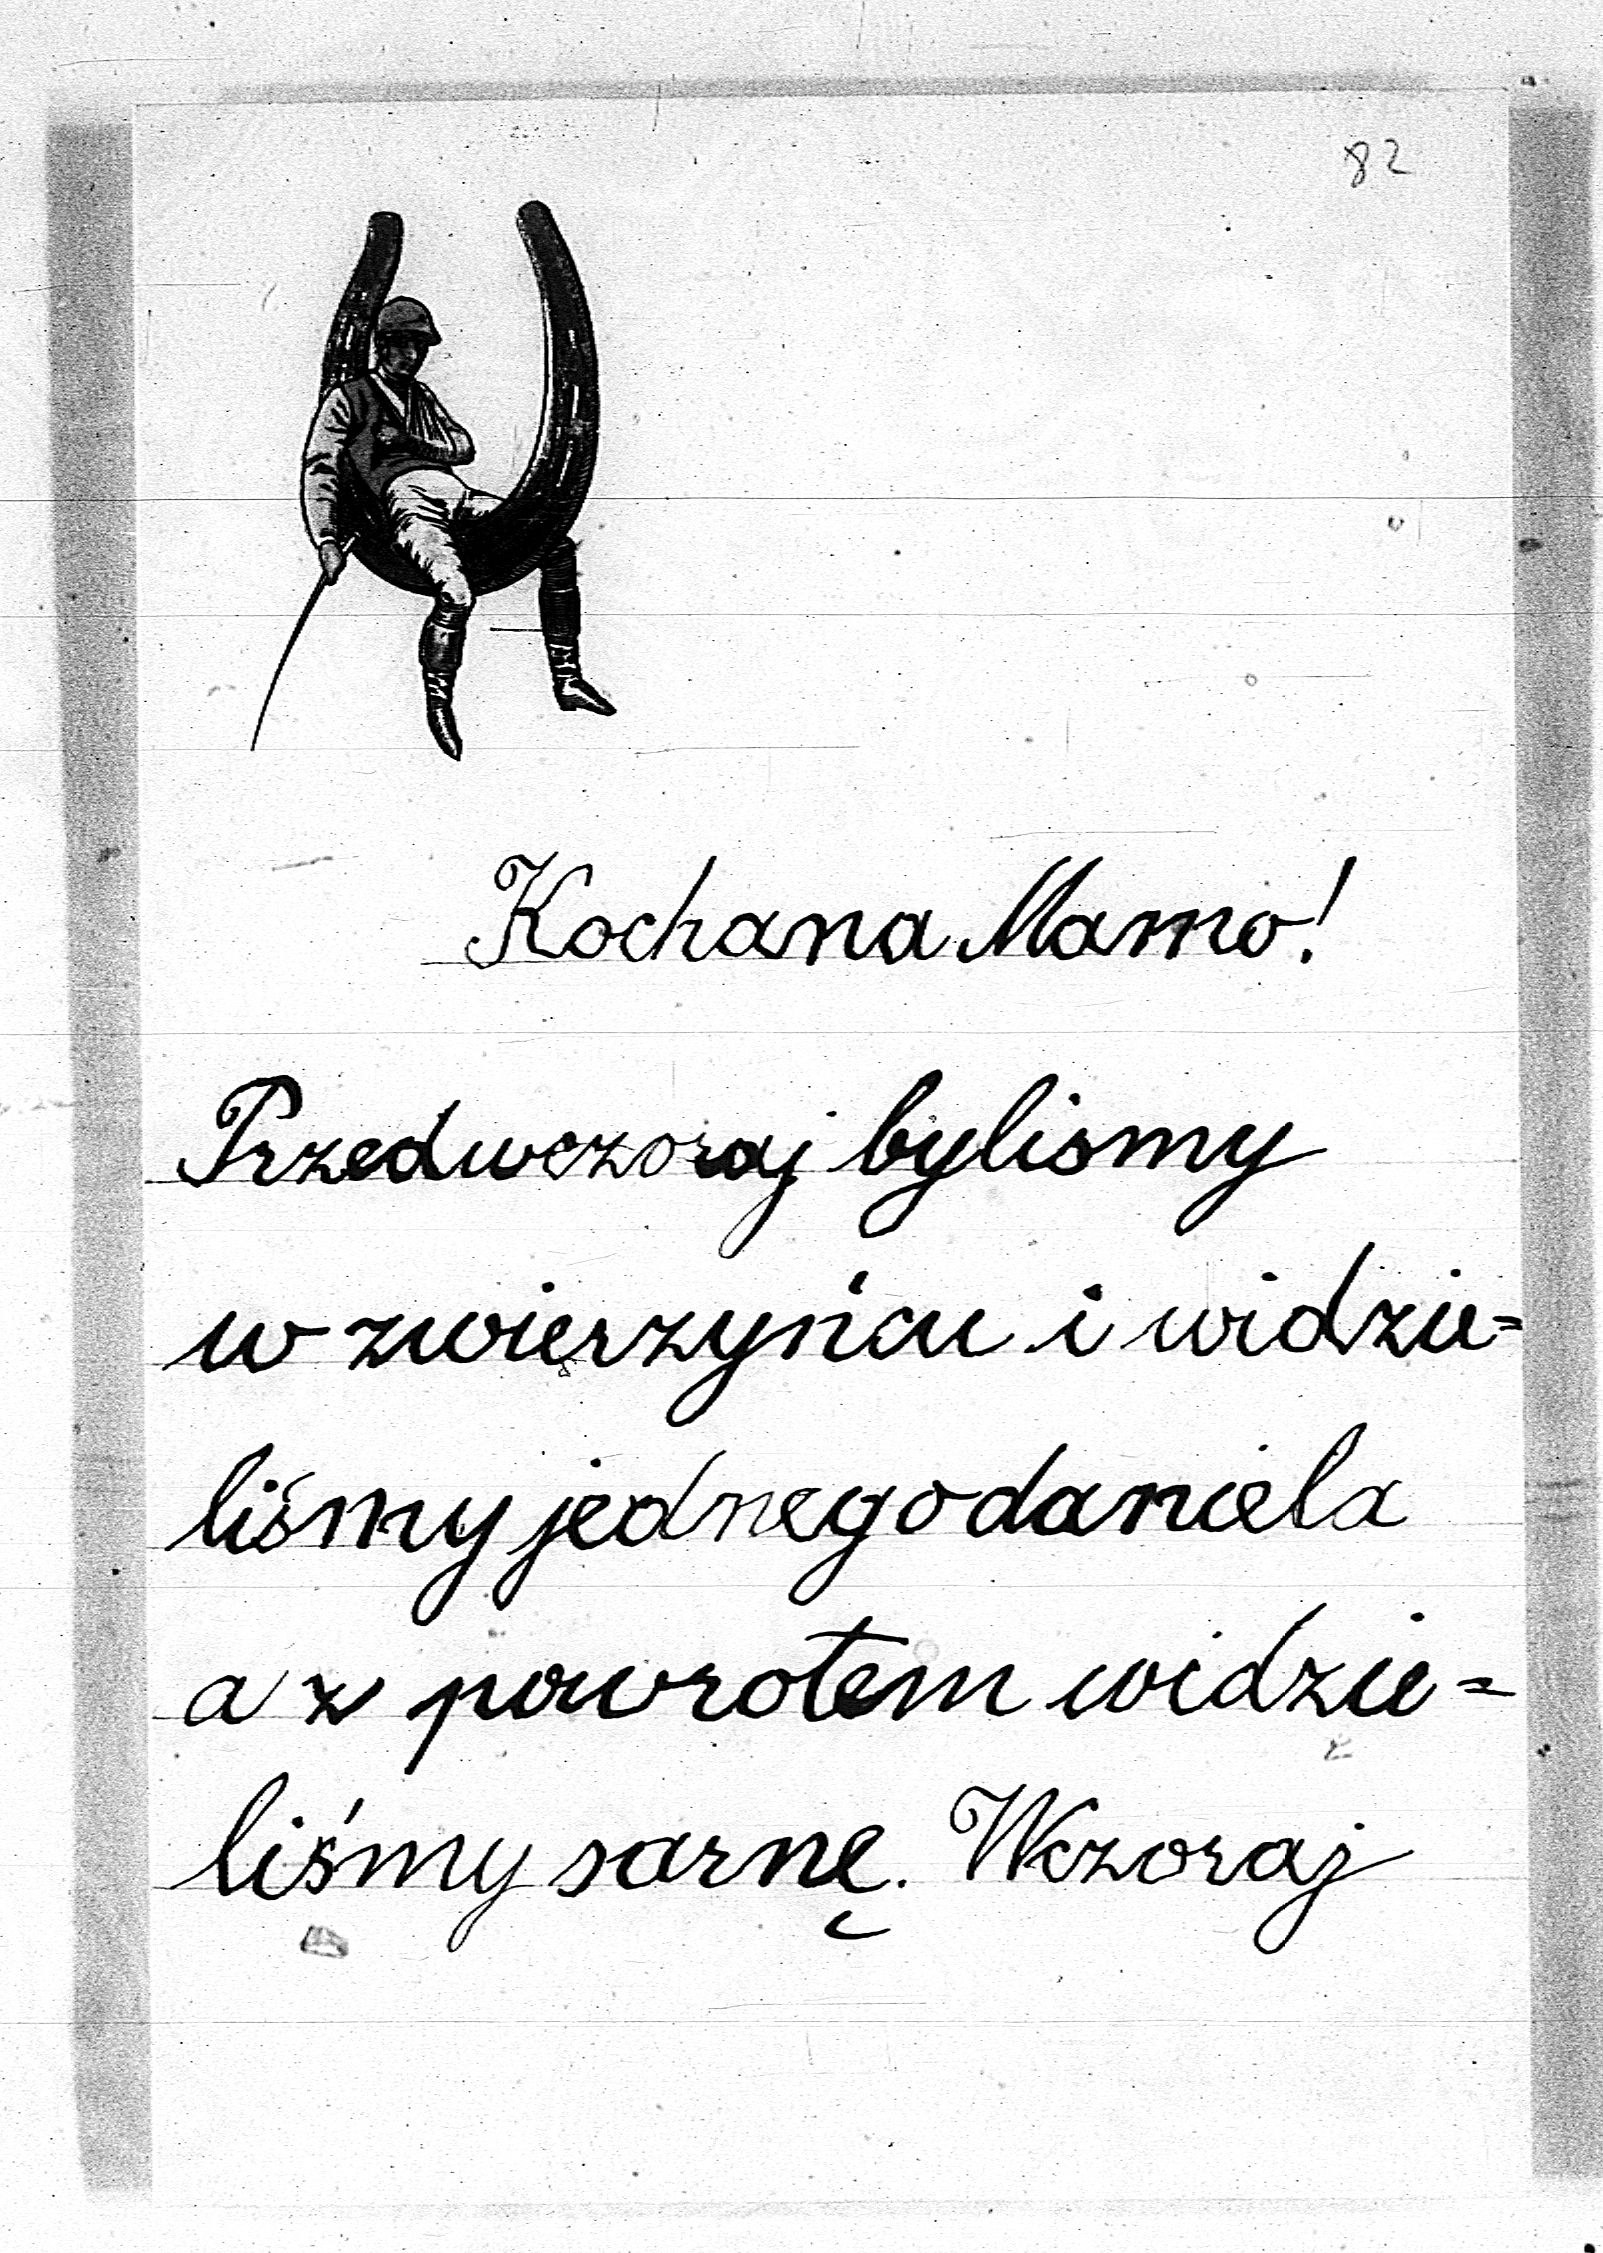 82
Kochana Mamo!
Przedwczoraj bylismy
w zwierzyńcu i widzie=
liśmy jednego daniela
a z powrotem widzie=
liśmy sarnę. Wczoraj